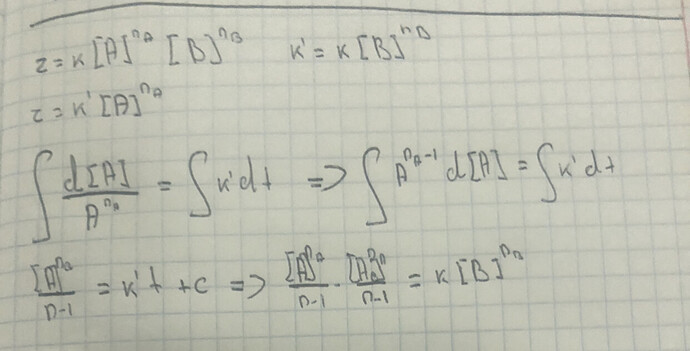 r = K[A]^{n_A} [B]^{n_B}    K' = K[B]^{n_B}
r = K'[A]^{n_A}
∫ d[A]/A^{n_A} = ∫ K'dt => ∫ A^{n_A-1} d[A] = ∫ K'dt
[A]^{n_A}/n-1 = K't + c => [A]^{n_A}/n-1 · /n-1 = K[B]^{n_B}